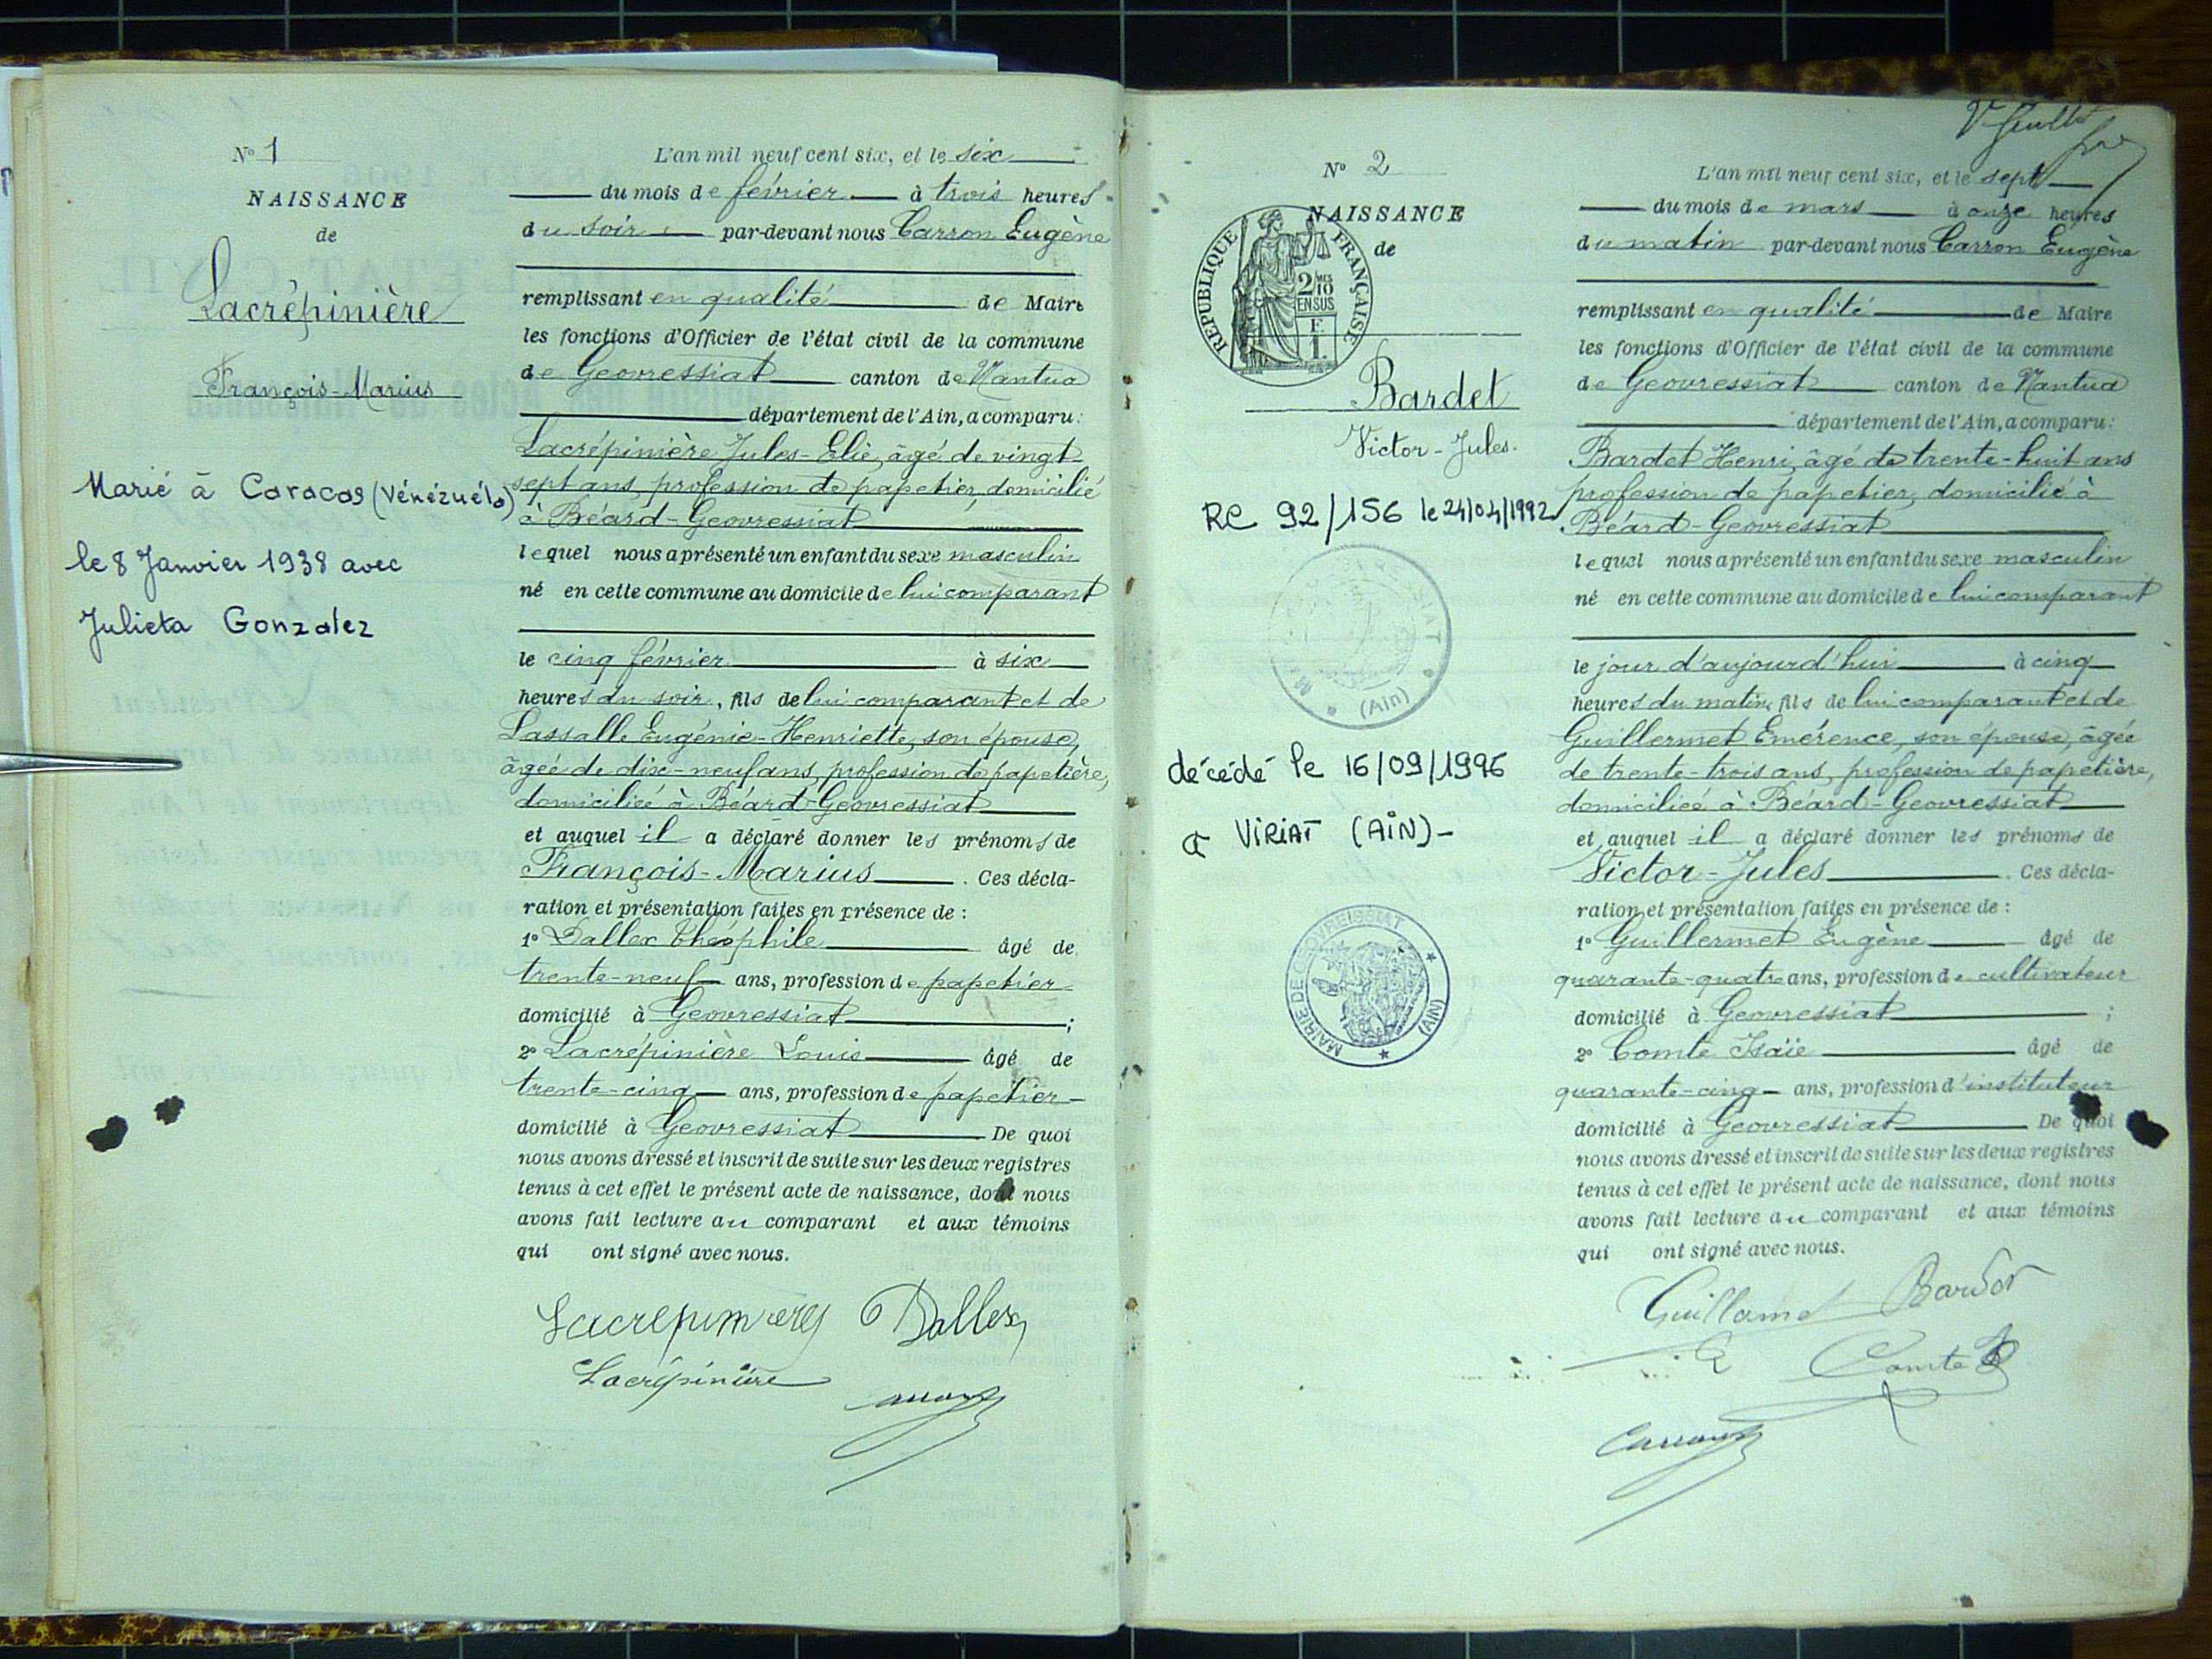 N° 1
NAISSANCE
de
Lacrépinière
François-Marius
Marié à Caracas (Vénézuéla)
le 8 Janvier 1938 avec
Julieta Gonzalez
L'an mil neuf cent six, et le six
du mois de février à trois heures
du soir par-devant nous Carron Eugène
remplissant en qualité de Maire
les fonctions d'Officier de l'état civil de la commune
de Geovressiat canton de Nantua
département de l'Ain, a comparu:
Lacrépinière Jules-Elie, âgé de vingt
sept ans, profession de papetier, domicilié
à Béard-Geovressiat
lequel nous a présenté un enfant du sexe masculin
né en cette commune au domicile de lui comparant
le cinq février à six
heures du soir, fils de lui comparant et de
Lassalle Eugénie-Henriette, son épouse,
âgée de dix-neuf ans, profession de papetière,
domiciliée à Béard-Geovressiat
et auquel il a déclaré donner les prénoms de
François-Marius. Ces décla-
ration et présentation faites en présence de :
1° Dallex Théophile âgé de
trente-neuf ans, profession de papetier
domicilié à Geovressiat ;
2° Lacrépinière Louis âgé de
trente-cinq ans, profession de papetier
domicilié à Geovressiat De quoi
nous avons dressé et inscrit de suite sur les deux registres
tenus à cet effet le présent acte de naissance, dont nous
avons fait lecture au comparant et aux témoins
qui ont signé avec nous.
Dallex
Lacrépinière
N° 2
NAISSANCE
de
REPUBLIQUE FRANÇAISE
2/10
EN SUS
F.
1.
Bardet
Victor-Jules.
RC 92/156 le 24/04/1992
(Ain)
décédé le 16/09/1996
à VIRIAT (AIN)-
MAIRIE DE GEOVREISSIAT
(AIN)
L'an mil neuf cent six, et le sept
du mois de mars à onze heures
du matin par-devant nous Carron Eugène
remplissant en qualité de Maire
les fonctions d'Officier de l'état civil de la commune
de Geovressiat canton de Nantua
département de l'Ain, a comparu:
Bardet Henri, âgé de trente-huit ans
profession de papetier, domicilié à
Béard-Geovressiat
lequel nous a présenté un enfant du sexe masculin
né en cette commune au domicile de lui comparant
le jour d'aujourd'hui à cinq
heures du matin, fils de lui comparant et de
Guillermet Emérence, son épouse, âgée
de trente-trois ans, profession de papetière,
domiciliée à Béard-Geovressiat
et auquel il a déclaré donner les prénoms de
Victor-Jules. Ces décla-
ration et présentation faites en présence de :
1° Guillermet Eugène âgé de
quarante-quatre ans, profession de cultivateur
domicilié à Geovressiat ;
2° Comte Isaïe âgé de
quarante-cinq ans, profession d'instituteur
domicilié à Geovressiat De quoi
nous avons dressé et inscrit de suite sur les deux registres
tenus à cet effet le présent acte de naissance, dont nous
avons fait lecture au comparant et aux témoins
qui ont signé avec nous.
Comte